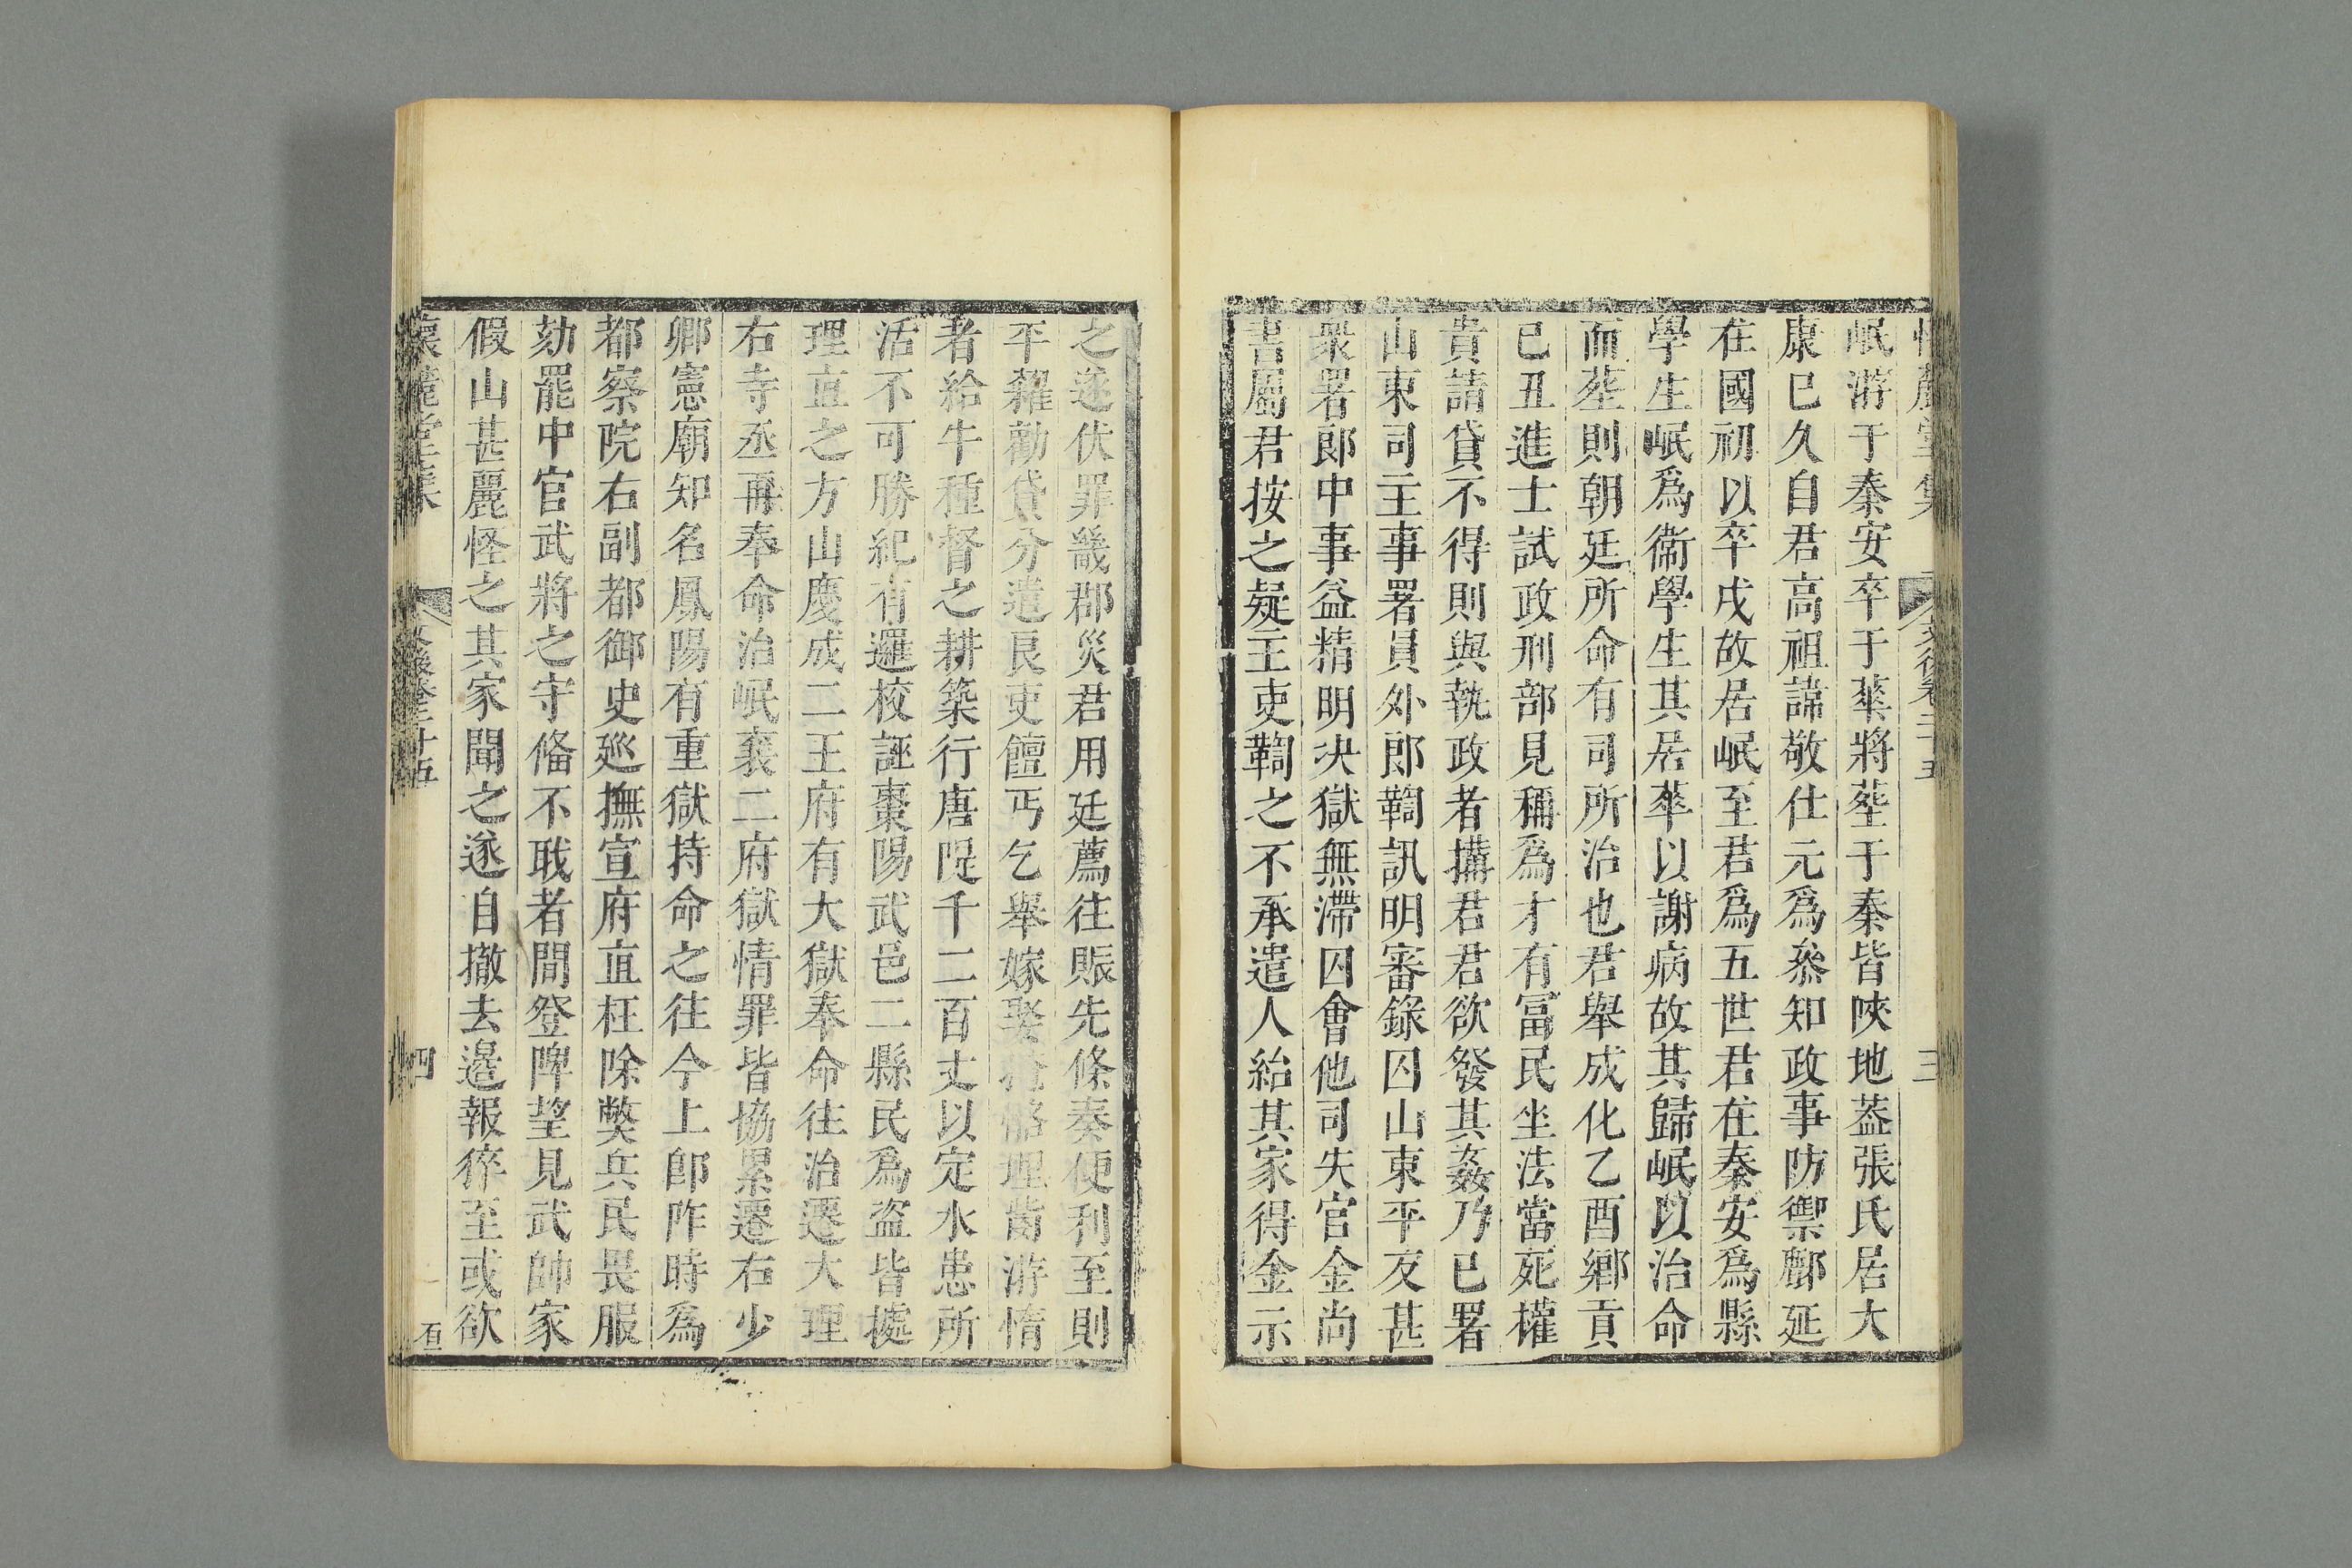 岷游于秦安卒于華將塟于秦皆陜地蓋張氏居大
康巳久自君高祖諱敬仕元爲叅知政事防禦鄜延
在國初以卒戍故居岷至君爲五世君在秦安爲縣
學生岷爲衞學生其居華以謝病故其歸岷以治命
而塟則朝廷所命有司所治也君舉成化乙酉鄕貢
巳丑進士試政刑部見稱爲才有冨民坐法當死權
貴請貸不得則與執政者搆君君欲發其姦乃巳署
山東司主事署員外郞鞫訊明審錄囚山東平反甚
衆署郞中事益精明决獄無滯囚會他司失官金尚
書屬君按之疑主吏鞫之不承遣人紿其家得金示
之遂伏罪畿郡災君用廷薦往賑先條奏便利至則
平糴勸貸分遣良吏饘丐乞舉嫁娶 骼埋胔游惰
者給牛種督之耕築行唐隄千二百丈以定水患所
活不可勝紀有邏校誣棗陽武邑二縣民爲盗皆擬
理直之方山慶成二王府有大獄奉命往治遷大理
右寺丞再奉命治岷襄二府獄情罪皆協累遷右少
卿憲廟知名鳳陽有重獄持命之往今上卽阼時爲
都察院右副都御史巡撫宣府直枉除獘兵民畏服
劾罷中官武將之守俻不戢者間登陴望見武帥家
假山甚麗怪之其家聞之遂自撤去邊報猝至或欲
懷麓堂集 文後卷二十五 四